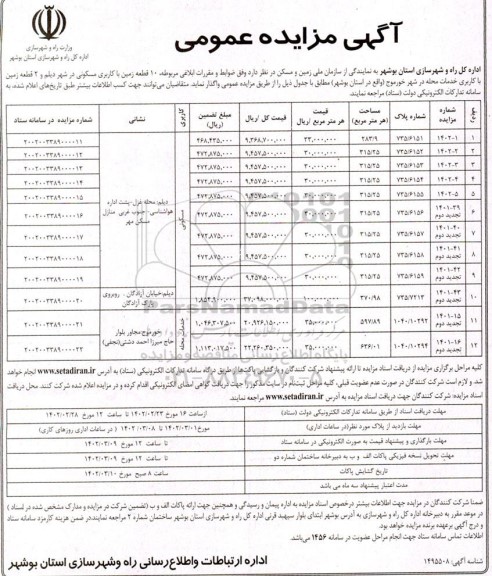 وزارت راه و شهرسازی
اداره کل راه و شهرسازی استان بوشهر
آگهی مزایده عمومی
اداره کل راه و شهرسازی استان بوشهر به نمایندگی از سازمان ملی زمین و مسکن در نظر دارد وفق ضوابط و مقررات ابلاغی مربوطه، ۱۰ قطعه زمین با کاربری مسکونی در شهر دیلم و ۲ قطعه زمین
با کاربری خدمات محله در شهر خورموج (واقع در استان بوشهر) مطابق با جدول ذیل را از طریق مزایده عمومی واگذار نماید. متقاضیان می‌توانند جهت کسب اطلاعات بیشتر طبق تاریخ‌های اعلام شده، به
سامانه تدارکات الکترونیکی دولت (ستاد) مراجعه نمایند.
ردیف شماره مزایده شماره پلاک مساحت (هتر مربع) قیمت هر متر مربع /ریال قیمت کل /ریال مبلغ تضمین (ریال) کاربری نشانی شماره مزایده در سامانه ستاد
۱ ۱۴۰۲-۱ ۷۳۵/۶۱۵۱ ۲۸۳/۹ ۳۳/۰۰۰/۰۰۰ ۹/۳۶۸/۷۰۰/۰۰۰ ۴۶۸/۴۳۵/۰۰۰ ۲۰۰۲۰۰۳۳۸۹۰۰۰۰۱۱
۲ ۱۴۰۲-۲ ۷۳۵/۶۱۵۲ ۳۱۵/۲۵ ۳۰/۰۰۰/۰۰۰ ۹/۴۵۷/۵۰۰/۰۰۰ ۴۷۲/۸۷۵/۰۰۰ ۲۰۰۲۰۰۳۳۸۹۰۰۰۰۱۲
۳ ۱۴۰۲-۳ ۷۳۵/۶۱۵۳ ۳۱۵/۲۵ ۳۰/۰۰۰/۰۰۰ ۹/۴۵۷/۵۰۰/۰۰۰ ۴۷۲/۸۷۵/۰۰۰ ۲۰۰۲۰۰۳۳۸۹۰۰۰۰۱۳
۴ ۱۴۰۲-۴ ۷۳۵/۶۱۵۴ ۳۱۵/۲۵ ۳۰/۰۰۰/۰۰۰ ۹/۴۵۷/۵۰۰/۰۰۰ ۴۷۲/۸۷۵/۰۰۰ ۲۰۰۲۰۰۳۳۸۹۰۰۰۰۱۴
۵ ۱۴۰۲-۵ ۷۳۵/۶۱۵۵ ۳۱۵/۲۵ ۹/۴۵۷/۵۰۰/۰۰۰ ۴۷۲/۸۷۵/۰۰۰ ۲۰۰۲۰۰۳۳۸۹۰۰۰۰۱۵
۶ ۱۴۰۱-۳۹ تجدید دوم ۷۳۵/۶۱۵۶ ۳۱۵/۲۵ ۹/۴۵۷/۵۰۰/۰۰۰ ۴۷۲/۸۷۵/۰۰۰ مسکونی دیلم-محله بقزل-پشت اداره هواشناسی- جنوب غربی منازل مسکن مهر ۲۰۰۲۰۰۳۳۸۹۰۰۰۰۱۶
۷ ۱۴۰۱-۴۰ تجدید دوم ۷۳۵/۶۱۵۷ ۳۱۵/۲۵ ۹/۴۵۷/۵۰۰/۰۰۰ ۴۷۲/۸۷۵/۰۰۰ ۲۰۰۲۰۰۳۳۸۹۰۰۰۰۱۷
۸ ۱۴۰۱-۴۱ تجدید دوم ۷۳۵/۶۱۵۸ ۳۱۵/۲۵ ۳۰/۰۰۰/۰۰۰ ۹/۴۵۷/۵۰۰/۰۰۰ ۴۷۲/۸۷۵/۰۰۰ ۲۰۰۲۰۰۳۳۸۹۰۰۰۰۱۸
۹ ۱۴۰۱-۴۲ تجدید دوم ۷۳۵/۶۱۵۹ ۳۱۵/۲۵ ۳۰/۰۰۰/۰۰۰ ۹/۴۵۷/۵۰۰/۰۰۰ ۴۷۲/۸۷۵/۰۰۰ ۲۰۰۲۰۰۳۳۸۹۰۰۰۰۱۹
۱۰ ۱۴۰۱-۴۳ تجدید دوم ۷۳۵/۷۲۱۳ ۳۷۰/۹۸ دیلم-خیابان آزادگان - روبروی پارک آزادگان ۲۰۰۲۰۰۳۳۸۹۰۰۰۰۲۰
۱۱ ۱۴۰۱-۱۵ تجدید دوم ۱۰۴۰/۱۰۲۹۲ ۵۹۷/۸۹ ۳۵/۰۰۰/۰۰۰ ۲۰/۹۲۶/۱۵۰/۰۰۰ ۱/۰۴۶/۳۰۷/۵۰۰ خدمات محله خورموج-مجاور بلوار حاج میرزا احمد دشتی(نجفی) ۲۰۰۲۰۰۳۳۸۹۰۰۰۰۲۱
۱۲ ۱۴۰۱-۱۶ تجدید دوم ۱۰۴۰/۱۰۲۹۴ ۶۳۶/۰۱ ۳۵/۰۰۰/۰۰۰ ۲۲/۲۶۰/۳۵۰/۰۰۰ ۱/۱۱۳/۰۱۷/۵۰۰ ۲۰۰۲۰۰۳۳۸۹۰۰۰۰۲۲
کلیه مراحل برگزاری مزایده از دریافت اسناد مزایده تا ارائه پیشنهاد شرکت کنندگان و بازگشایی پاکت‌ها از طریق درگاه سامانه تدارکات الکترونیکی دولت (ستاد) به آدرس www.setadiran.ir انجام خواهد
شد. و لازم است شرکت کنندگان در صورت عدم عضویت قبلی، کلیه مراحل ثبت‌نام در سایت مذکور را جهت دریافت گواهی امضای الکترونیکی اقدام کرده و در مزایده اعلام شده شرکت کنند. محل دریافت
اسناد مزایده: شرکت کنندگان جهت دریافت اسناد مزایده به آدرس www.setadiran.ir مراجعه نمایند.
مهلت دریافت اسناد از طریق سامانه تدارکات الکترونیکی دولت (ستاد) ازساعت ۱۶ مورخ ۱۴۰۲/۰۲/۲۳ تا ساعت ۱۲ مورخ ۱۴۰۲/۰۲/۲۸
مهلت بازدید از پلاک مورد نظر(در ساعات اداری) مورخ۱۴۰۲/۰۳/۰۱ تا ۱۴۰۲/۰۳/۰۸ ( در ساعات اداری روزهای کاری)
مهلت بارگذاری و پیشنهاد قیمت به صورت الکترونیکی در سامانه ستاد تا ساعت ۱۲ مورخ ۱۴۰۲/۰۳/۰۹
مهلت تحویل نسخه فیزیکی پاکات الف و ب به دبیرخانه ساختمان شماره دو تا ساعت ۱۲ مورخ ۱۴۰۲/۰۳/۰۹
تاریخ گشایش پاکات ساعت ۸ صبح مورخ ۱۴۰۲/۰۳/۱۰
مدت اعتبار پیشنهاد سه ماه می باشد
ضمنا شرکت کنندگان در مزایده جهت اطلاعات بیشتر درخصوص اسناد مزایده به اداره پیمان و رسیدگی و همچنین جهت ارائه پاکات الف و ب (تضمین شرکت در مزایده و مدارک مشخص شده در اسناد )
در موعد مقرر به دبیرخانه اداره کل راه و شهرسازی به آدرس بوشهر ابتدای بلوار سپهبد قرنی اداره کل راه و شهرسازی استان بوشهر ساختمان شماره ۲ مراجعه نمایند.در ضمن هزینه کارمزد سامانه ستاد
و درج آگهی برعهده برنده مزایده خواهد بود.
اطلاعات تماس سامانه ستاد جهت انجام مراحل عضویت در سامانه ۱۴۵۶ می‌باشد.
شناسه آگهی: ۱۴۹۵۵۰۸
اداره ارتباطات واطلاع‌رسانی راه وشهرسازی استان بوشهر